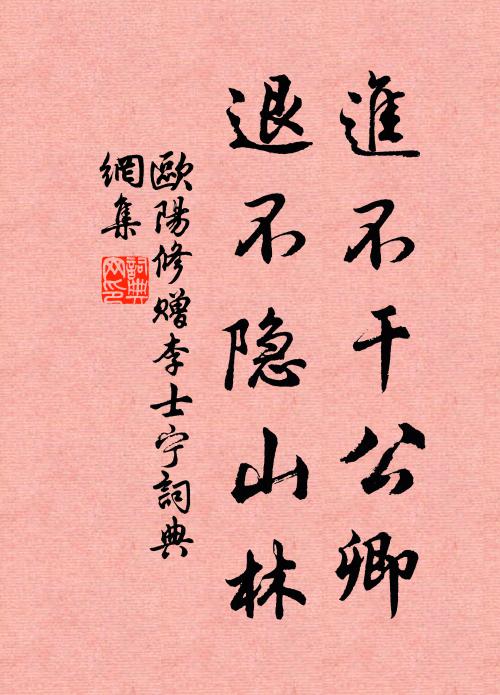 進不干公卿
退不隐山林
歐陽修贈李士宁詞典
網集
詞典
网印